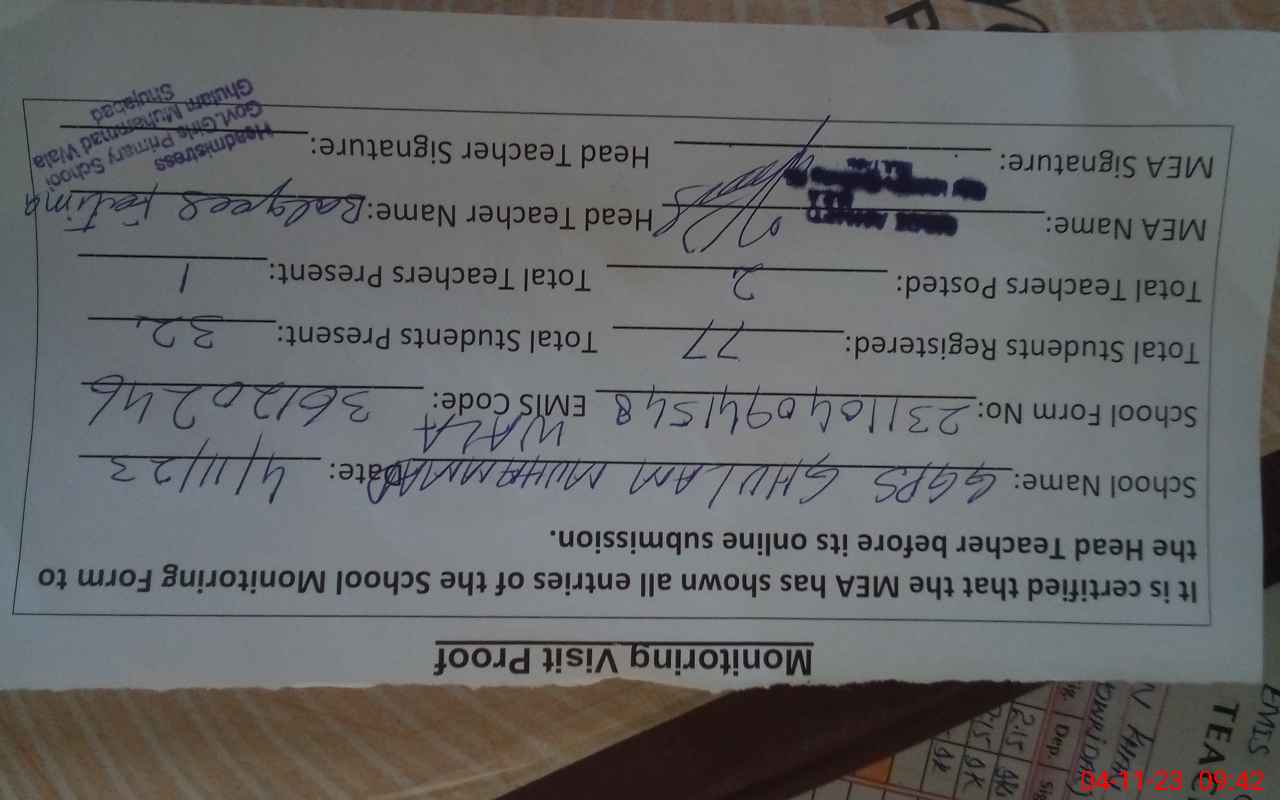 Monitoring Visit Proof
It is certified that the MEA has shown all entries of the School Monitoring Form to
the Head Teacher before its online submission.
School Name: GGPS GHULAM MUHAMMAD WALA Date: 4/11/23
School Form No: 2311040941548 EMIS Code: 36120246
Total Students Registered: 77 Total Students Present: 32
Total Teachers Posted: 2 Total Teachers Present: 1
MEA Name: Head Teacher Name: Balqees Fatima
MEA Signature: Head Teacher Signature:
Headmistress
Govt. Girls Primary School
Ghulam Muhammad Wala
Shujabad
EMIS
TEAC
Dep.
2:15
04-11-23 09:42